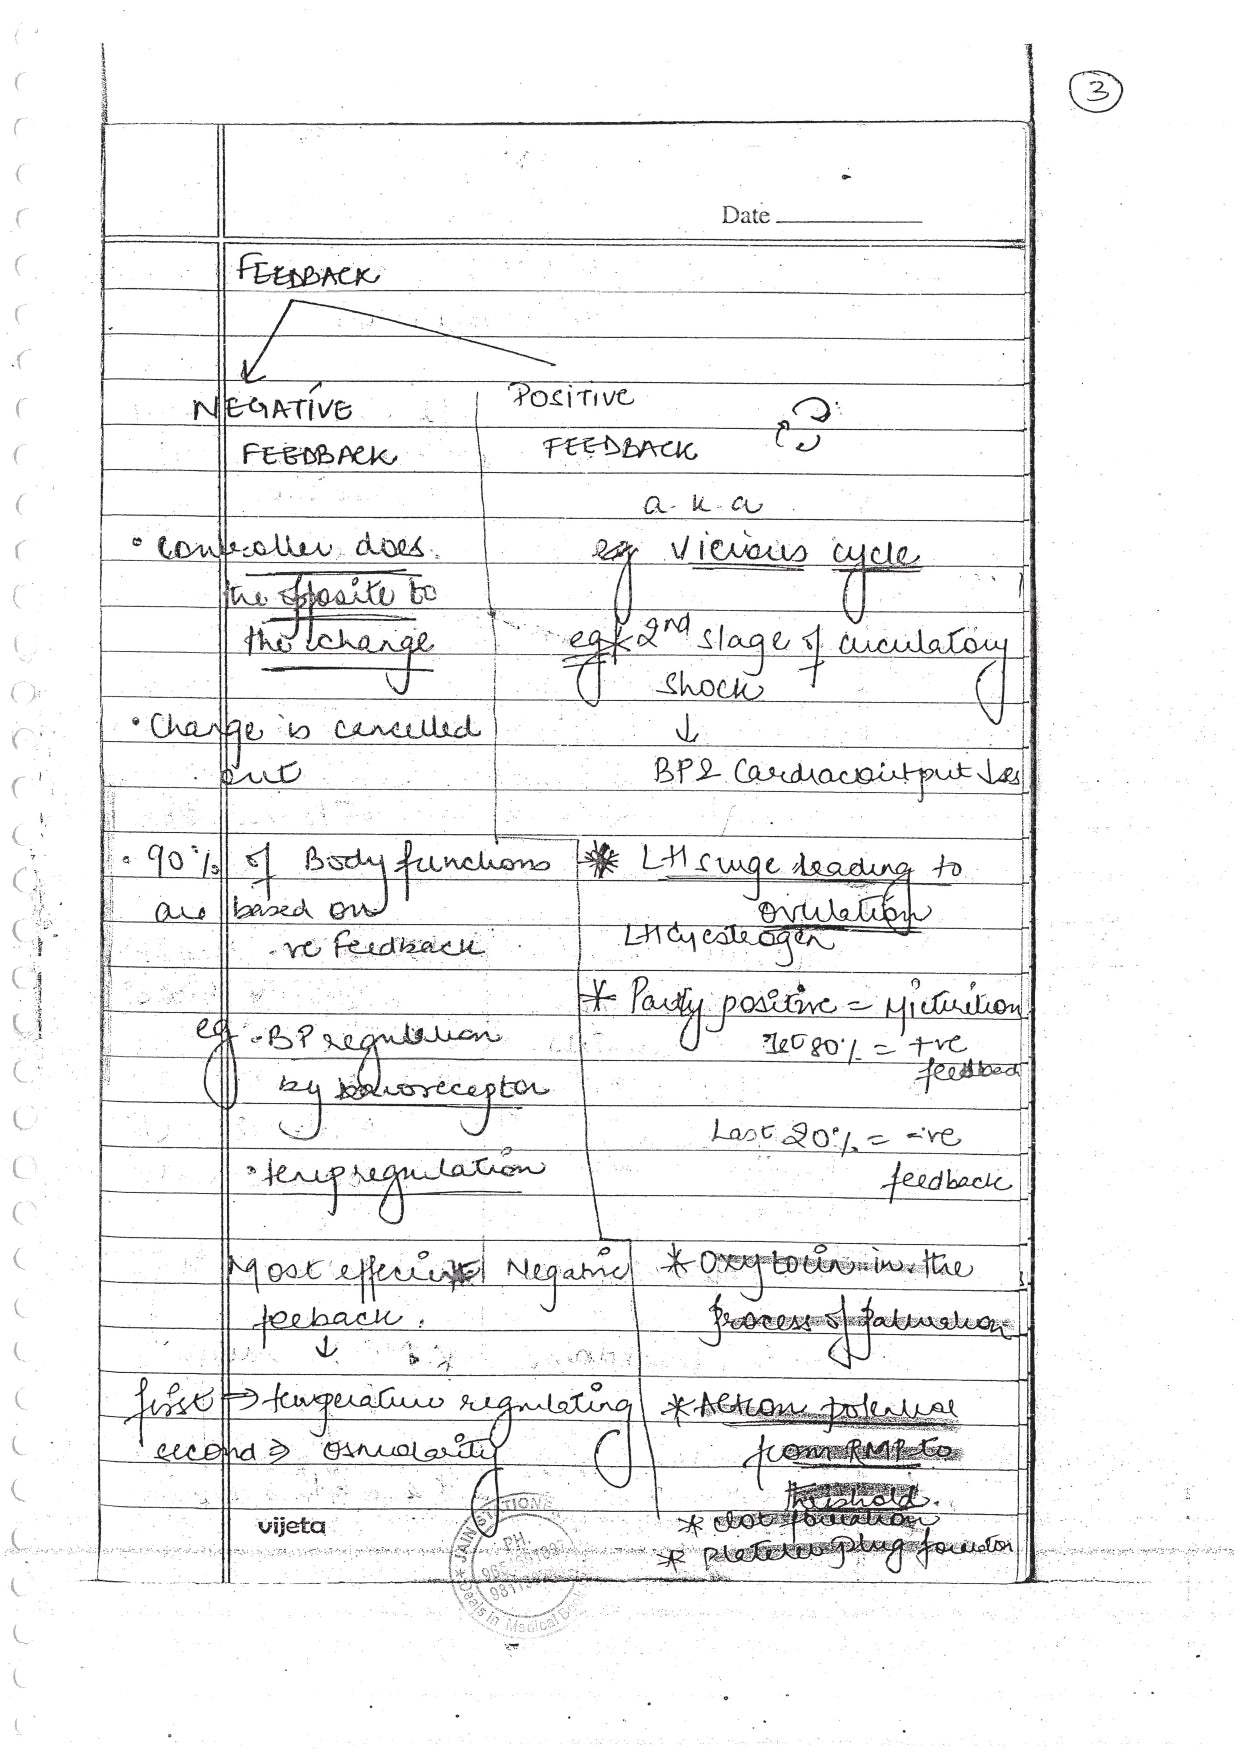 3
Date
FEEDBACK
NEGATIVE
FEEDBACK
• Controller does
the opposite to
the change
• Change is cancelled
out
• 90% of Body functions
are based on
-ve feedback
eg • BP regulation
by baroreceptor
• temp regulation
Most effecient Negative
feeback.
↓
first ⇒ temperature regulating
second ⇒ Osmolarity
POSITIVE
FEEDBACK
a.k.a
eg Vicious cycle
eg * 2nd stage of circulatory
shock
↓
BP & Cardiac output ↓es
* LH surge leading to
ovulation
LH estrogen
* Partly positive = Micturition
1st 80% = +ve
feedback
Last 20% = -ve
feedback
* Oxytocin in the
process of parturition
* Action potential
from RMP to
threshold.
* clot formation
* platelet plug formation
vijeta
JAIN
PH.
Deals in Medical